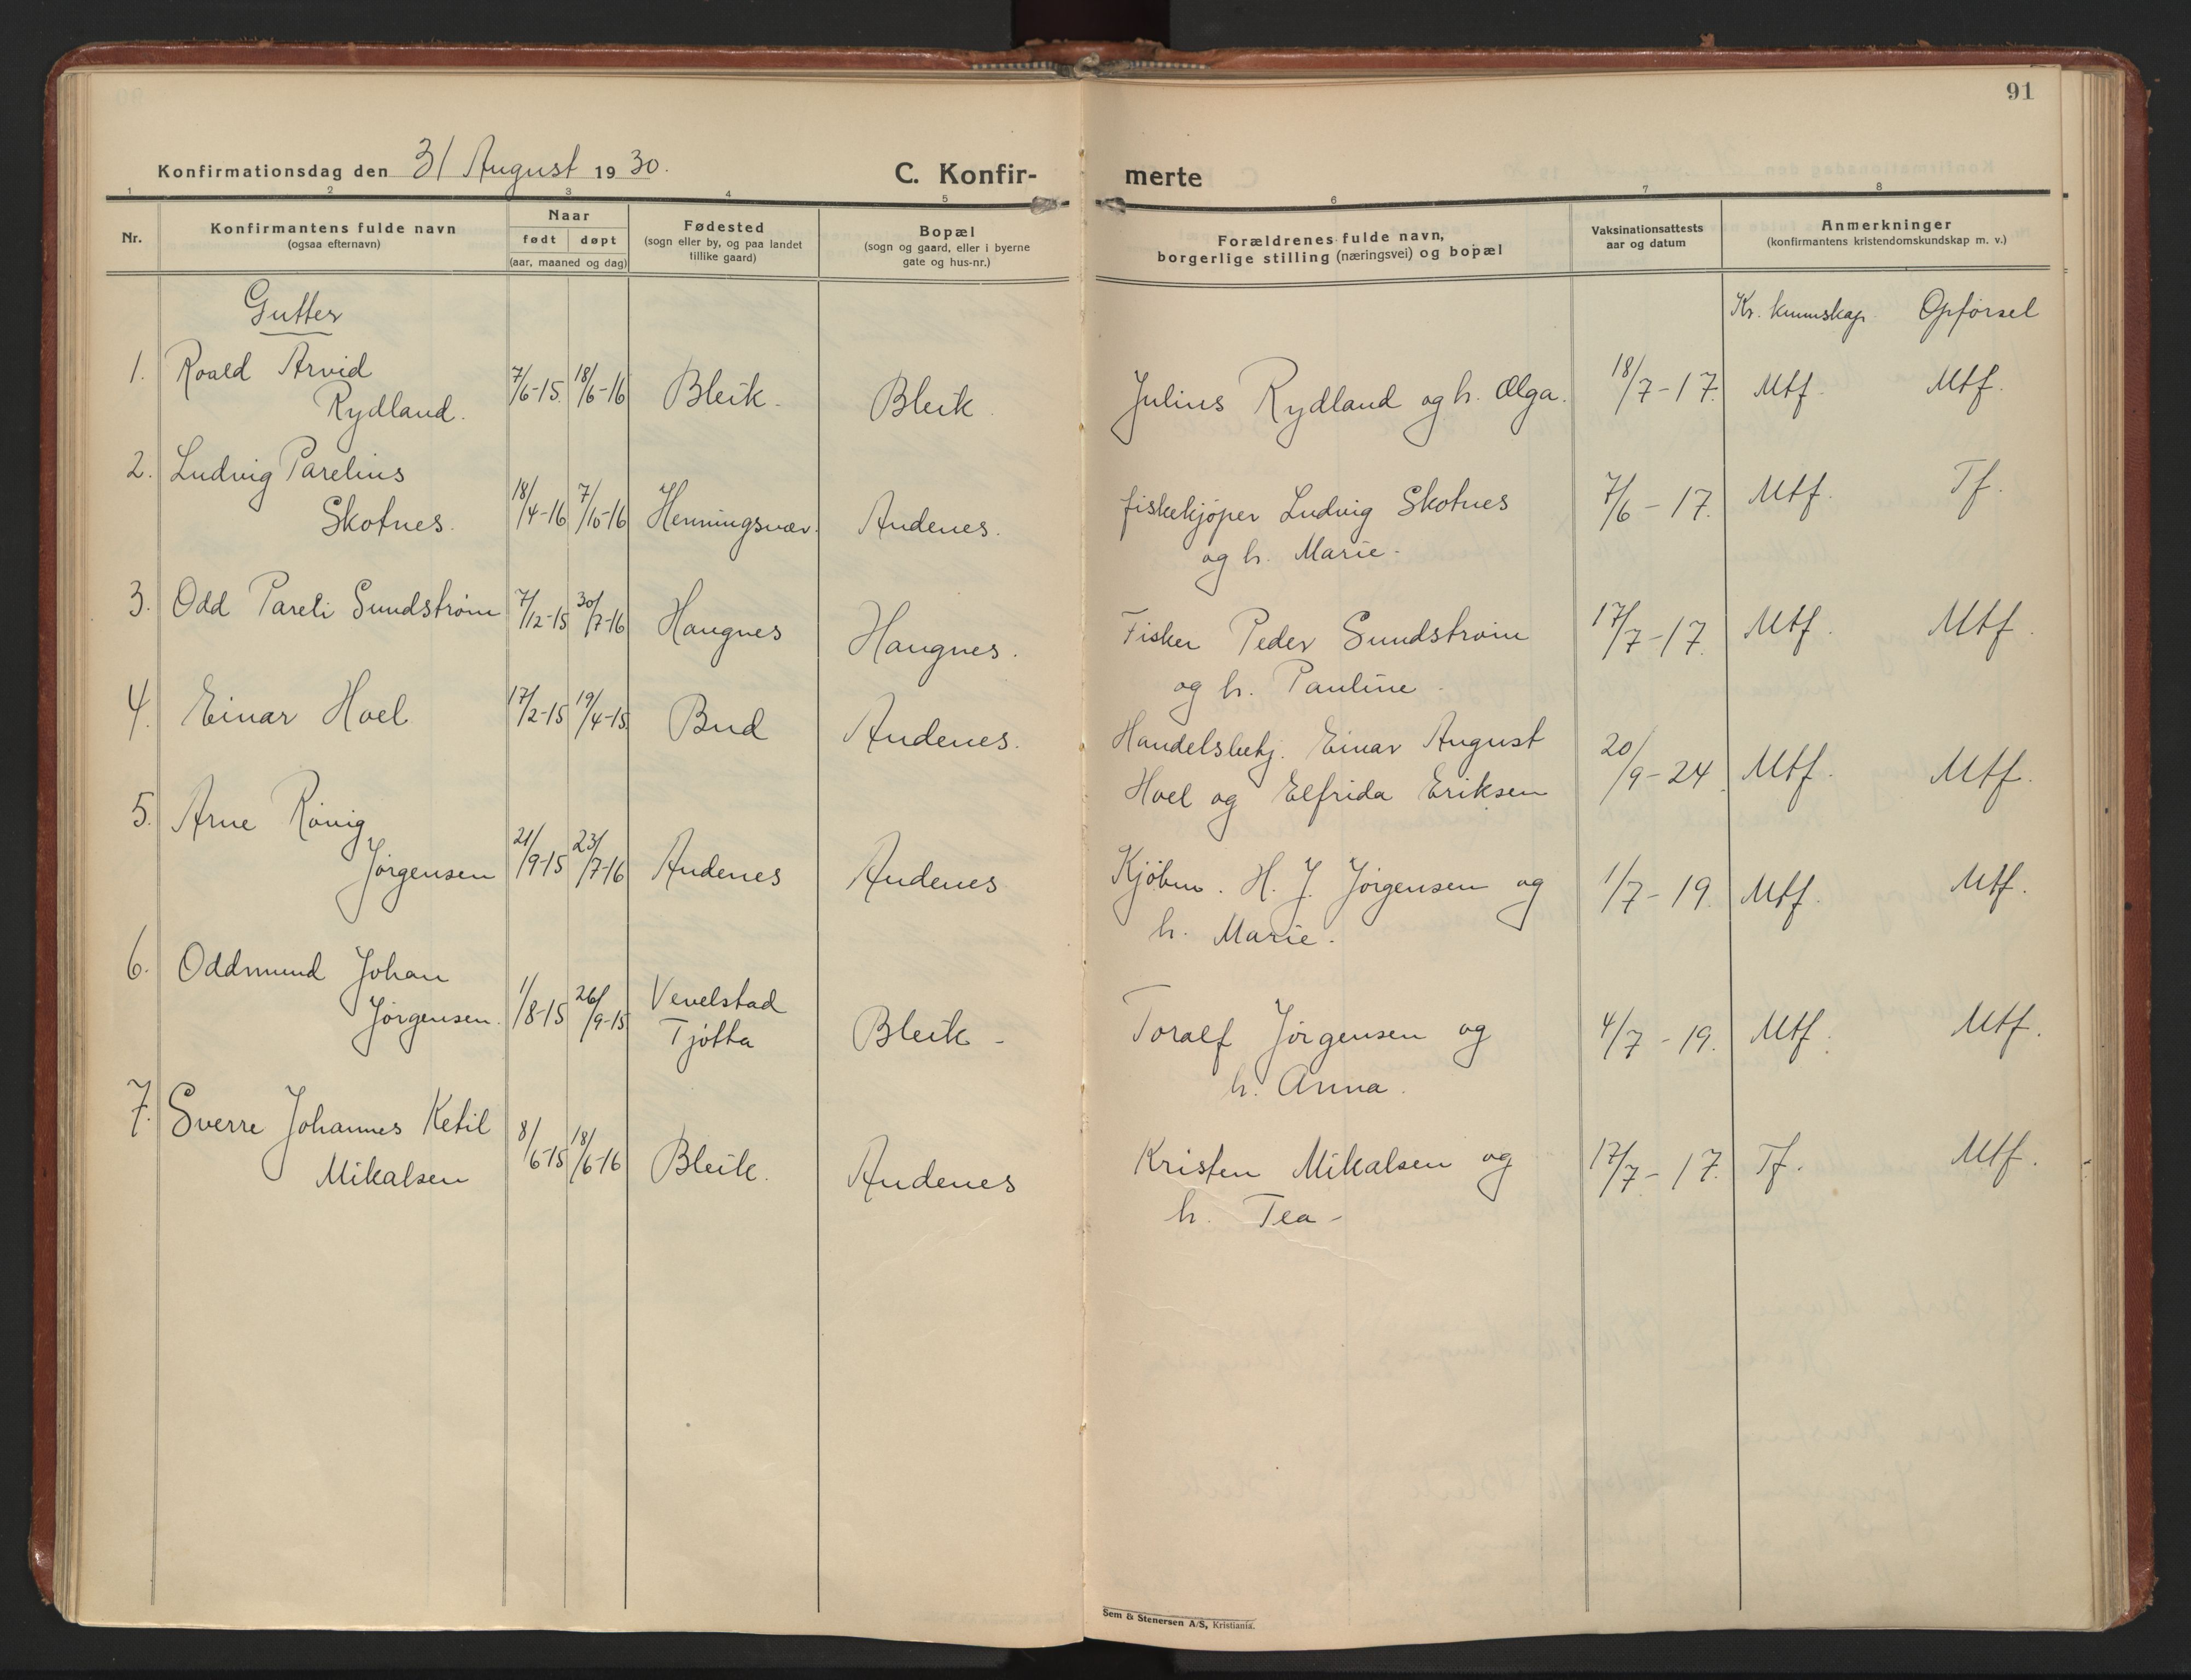 91
Konfirmationsdag den 31 August 1930.
C. Konfir-
merte
1 2 3 4 5 6 7 8
Nr.
Konfirmantens fulde navn
(ogsaa efternavn)
Naar
født døpt
(aar, maaned og dag)
Fødested
(sogn eller by, og paa landet
tillike gaard)
Bopæl
(sogn og gaard, eller i byerne
gate og hus-nr.)
Forældrenes fulde navn,
borgerlige stilling (næringsvei) og bopæl
Vaksinationsattests
aar og datum
Anmerkninger
(konfirmantens kristendomskundskap m. v.)
Gutter
Kr. kunnskap. Opførsel
1. Roald Arvid
Rydland. 7/6-15. 18/6-16 Bleik. Bleik. Julius Rydland og h. Olga. 18/7-17. Mtf. Mtf.
2. Ludvig Parelius
Skotnes. 18/4-16 7/10-16 Henningsvær. Andenes. fiskekjøper Ludvig Skotnes 7/6-17. Mtf. Tf.
og h. Marie.
3. Odd Pareli Sundstrøm 7/12-15 30/7-16 Haugnes Haugnes. Fisker Peder Sundstrøm 17/7-17. Mtf. Mtf.
og h. Pauline.
4. Einar Hoel 17/2-15 19/4-15 Bud Andenes. Handelsbetj. Einar August 20/9-24. Mtf. Mtf.
Hoel og Elfrida Eriksen
5. Arne Rønig
Jørgensen 21/9-15 23/7-16 Andenes Andenes Kjøbm. H. J. Jørgensen og 1/7-19. Mtf. Mtf.
h. Marie.
6. Oddmund Johan
Jørgensen. 1/8-15 26/9-15 Vevelstad
Tjøtta Bleik - Toralf Jørgensen og 4/7-19. Mtf. Mtf.
h. Anna.
7. Sverre Johannes Ketil
Mikalsen 8/6-15 18/6-16 Bleik. Andenes Kristen Mikalsen og 17/7-17. Tf. Mtf.
h. Tea -
Sem & Stenersen A/S, Kristiania.